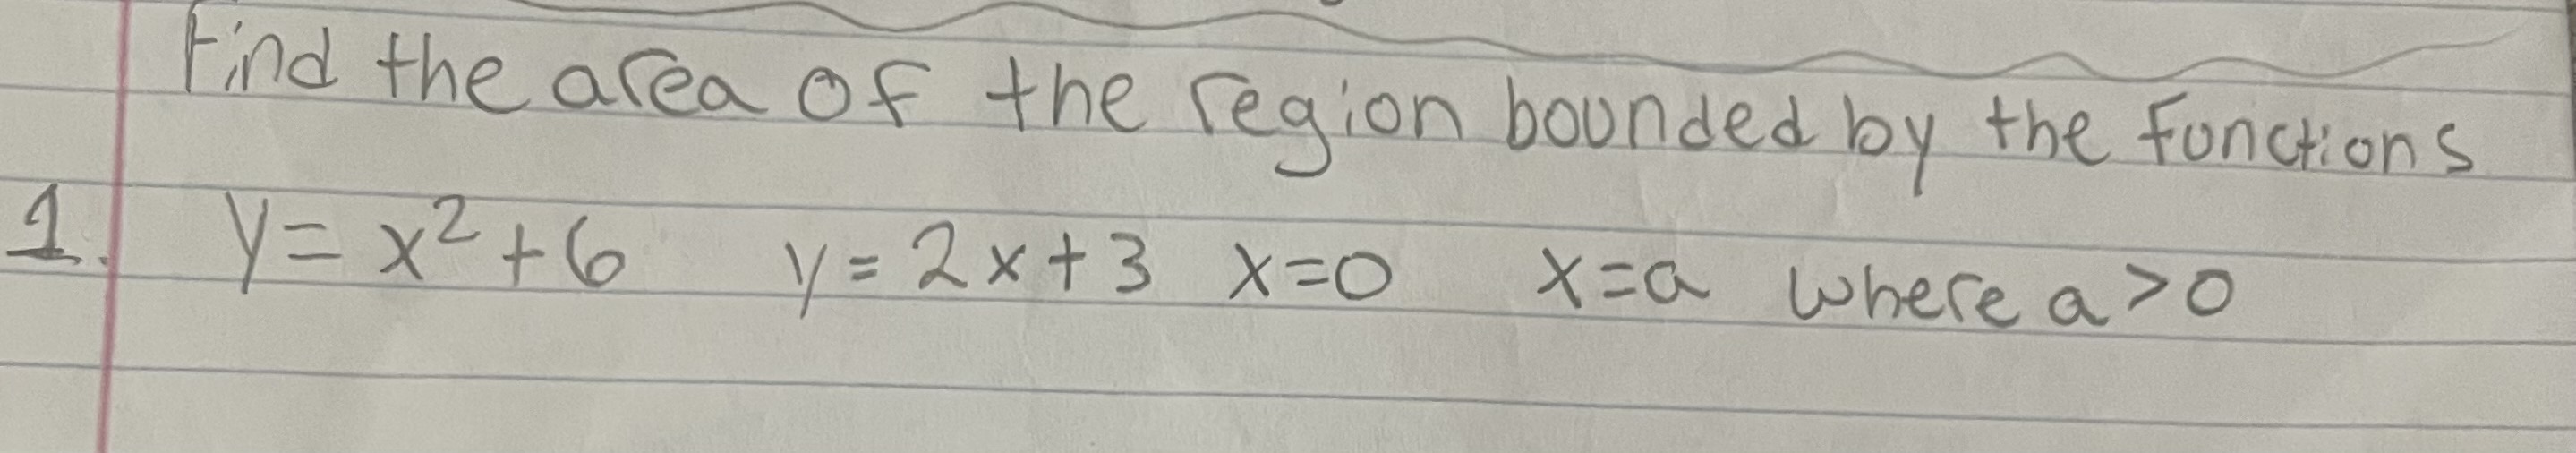 Find the area of the region bounded by the functions
1. y = x² + 6 y = 2x + 3 x = 0 x = a where a > 0